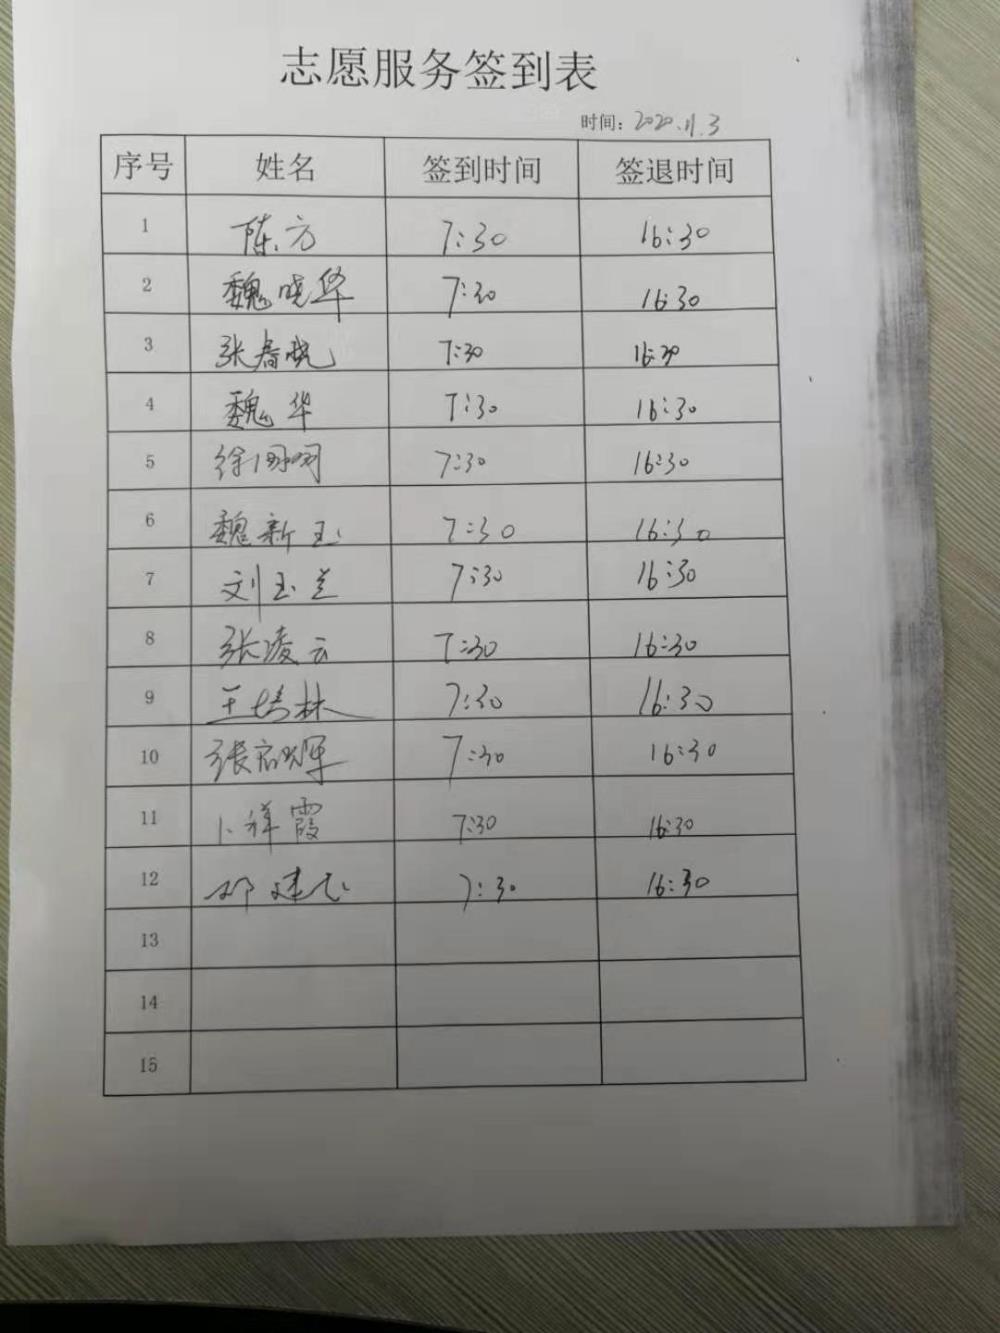 志愿服务签到表
时间：2020.11.3
序号 姓名 签到时间 签退时间
1 陈方 7:30 16:30
2 魏晓华 7:30 16:30
3 张春晓 7:30 16:30
4 魏华 7:30 16:30
5 徐 7:30 16:30
6 魏新玉 7:30 16:30
7 刘玉兰 7:30 16:30
8 张凌云 7:30 16:30
9 王培林 7:30 16:30
10 张启辉 7:30 16:30
11 卜祥霞 7:30 16:30
12 邓建飞 7:30 16:30
13
14
15